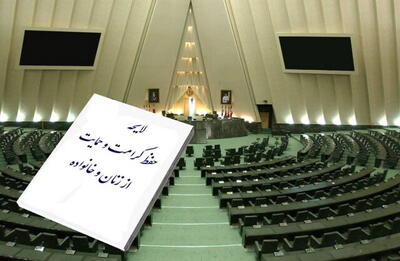 لایحه
حفظ کرامت و حمایت
از زنان و خانواده